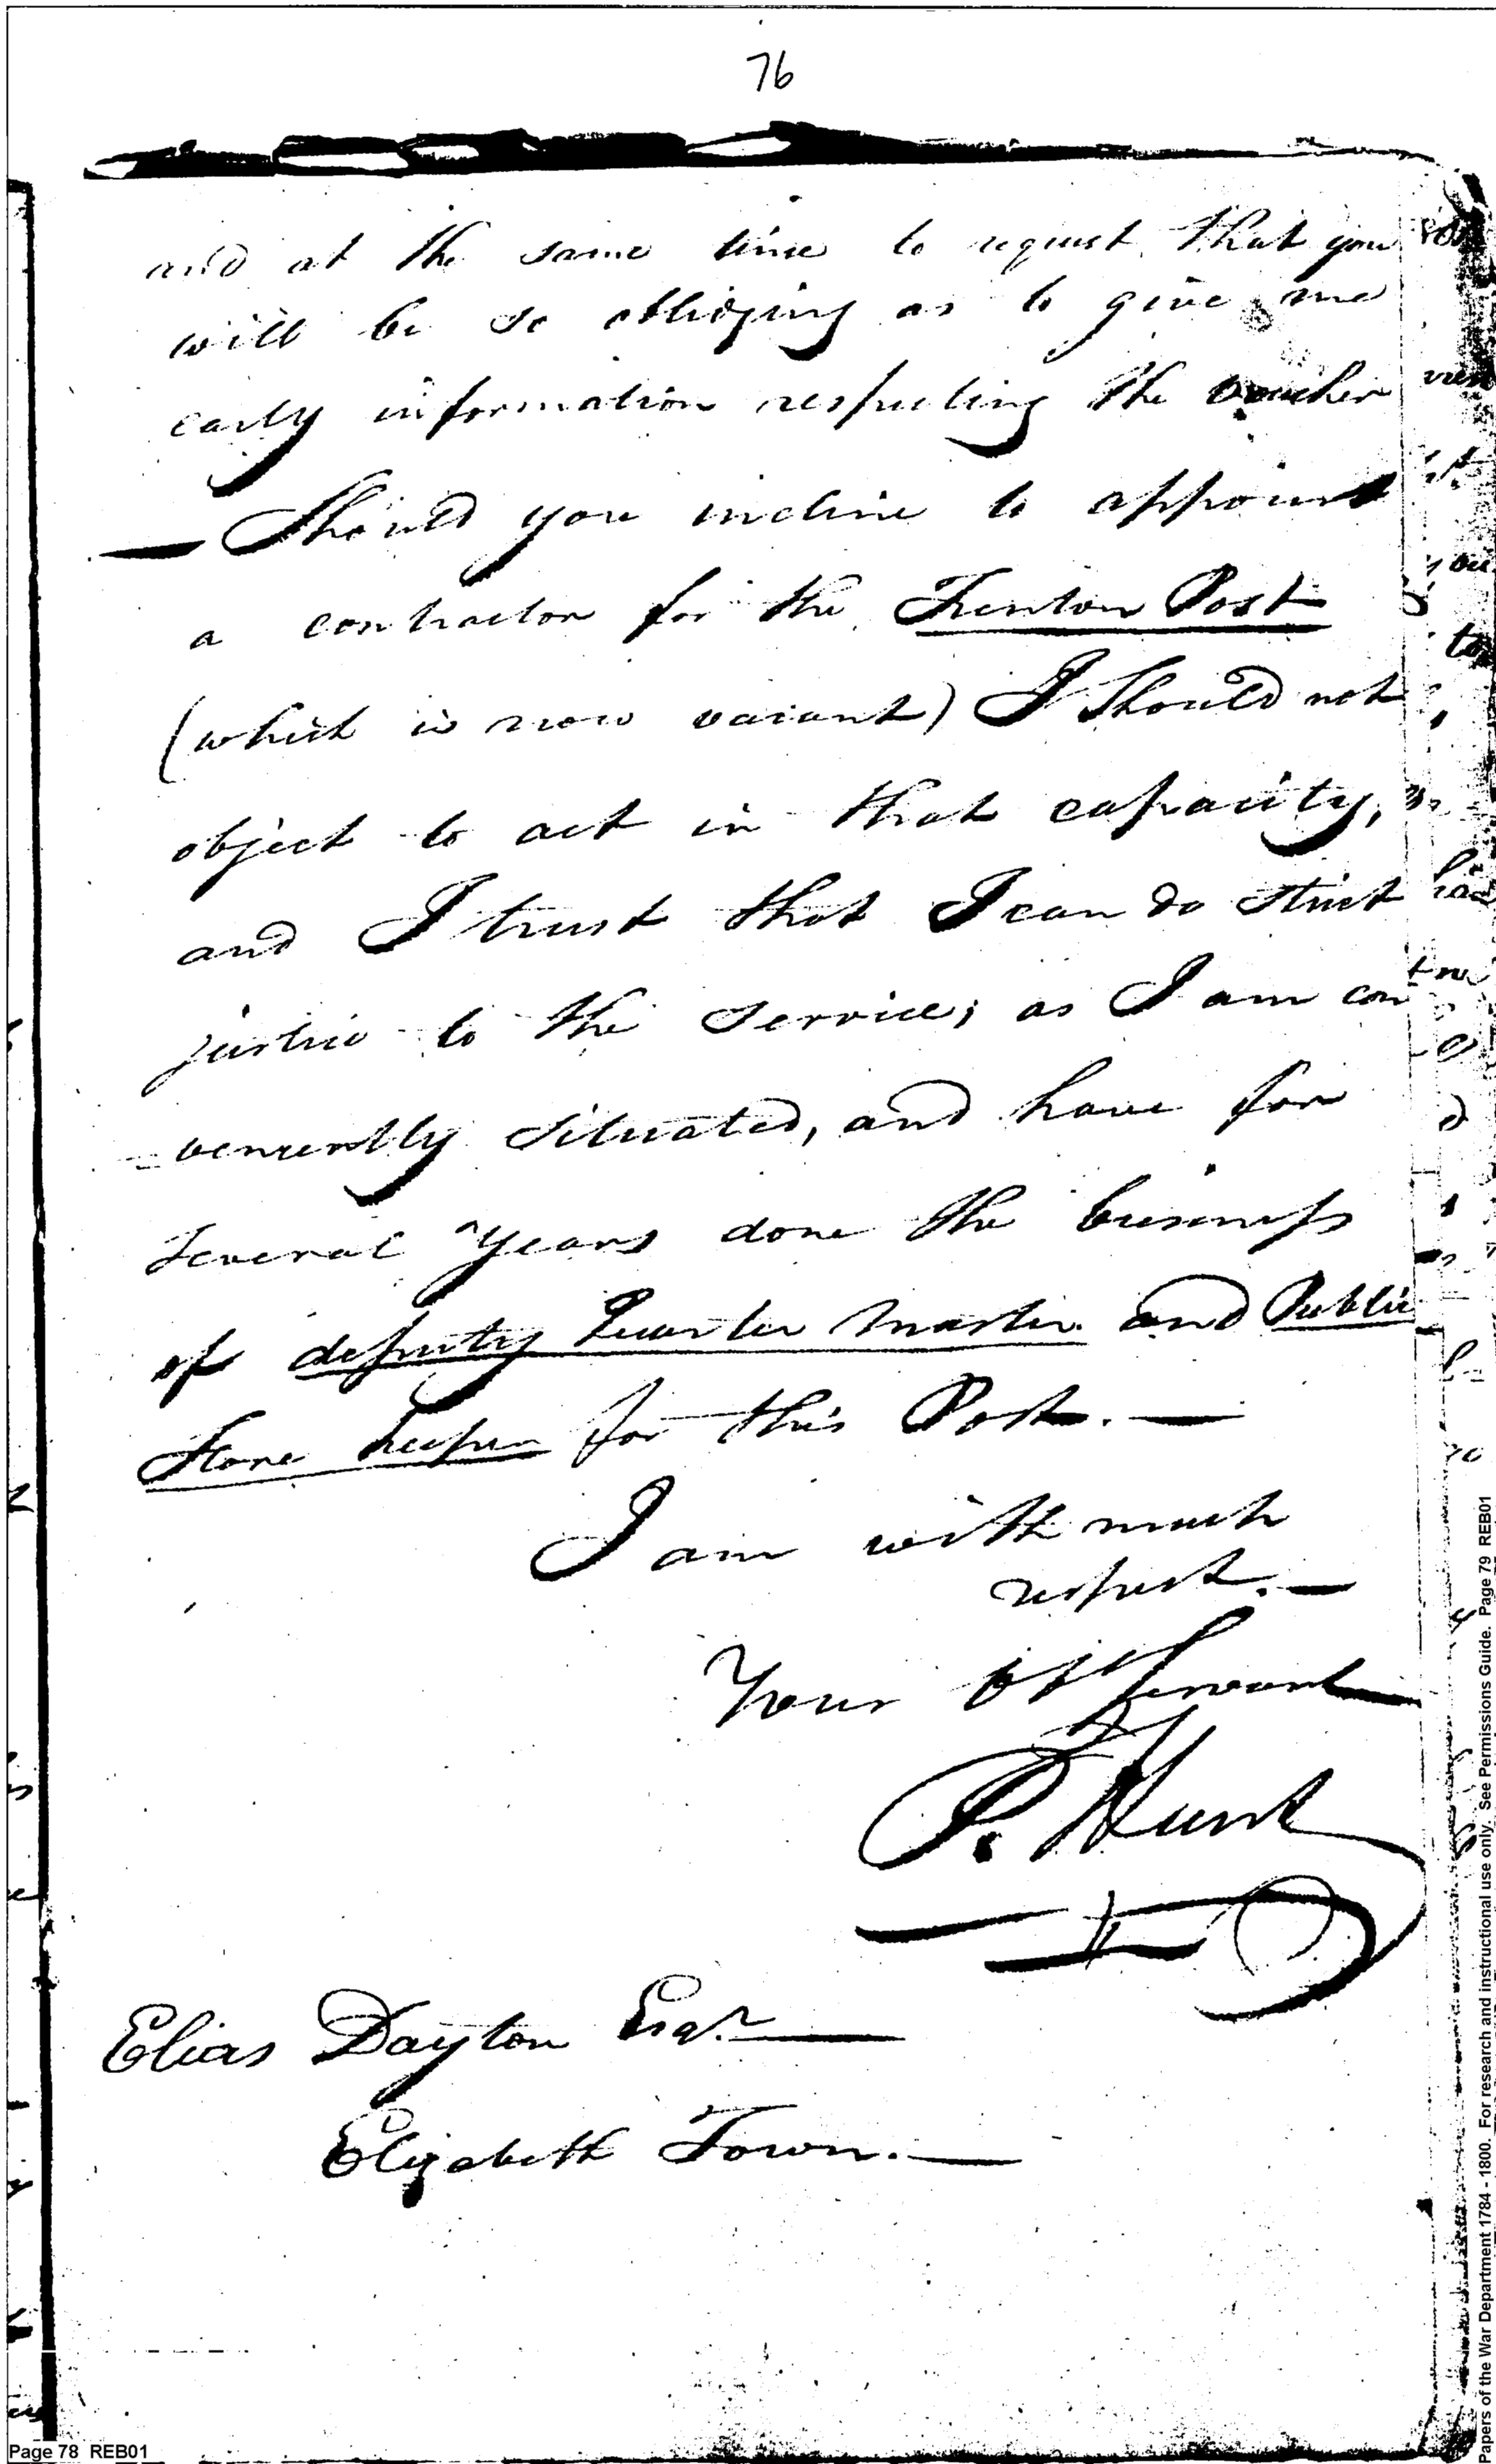 76
and at the same time to request that you
will be so obliging as to give me
early information respecting the voucher
— Should you incline to appoint
a contractor for the Trenton Post
(which is now vacant) I Should not
object to act in that capacity,
and I trust that I can do strict
justice to the Service; as I am con
veniently situated, and have for
several Years done the business
of deputy Quarter Master and Public
Store keeper for this Post. —
I am with much
respect. —
Your Obt Servant
P. Hunt
Elias Dayton Esqr. —
Elizabeth Town. —
Page 78 REB01
Papers of the War Department 1784 - 1800. For research and instructional use only. See Permissions Guide. Page 79 REB01